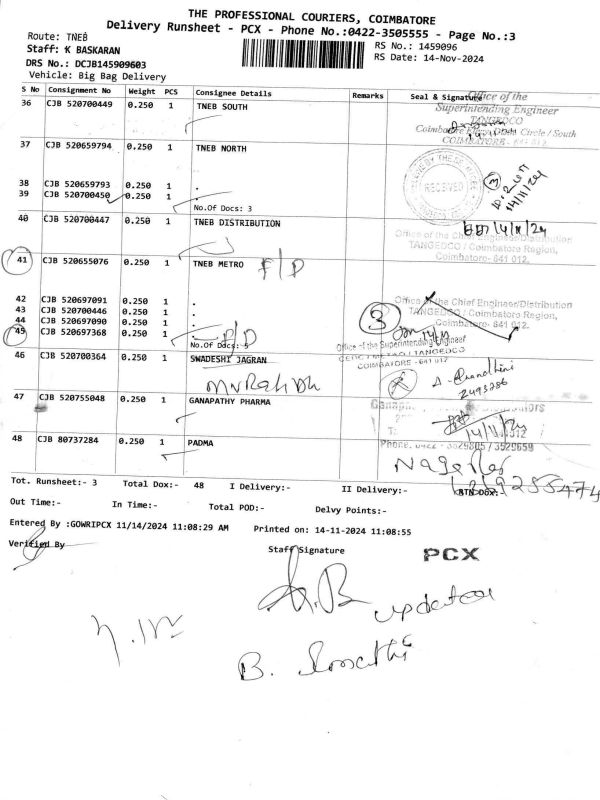 THE PROFESSIONAL COURIERS, COIMBATORE
Delivery Runsheet - PCX - Phone No.:0422-3505555 - Page No.:3
Route: TNEB
Staff: K BASKARAN
RS No.: 1459096
DRS No.: DCJB145909603
RS Date: 14-Nov-2024
Vehicle: Big Bag Delivery
S No Consignment No Weight PCS Consignee Details Remarks Seal & Signature
36 CJB 520700449 0.250 1 TNEB SOUTH
Office of the
Superintending Engineer
TANGEDCO
Circle / South
COIMBATORE - 641 012.
37 CJB 520659794 0.250 1 TNEB NORTH
RECEIVED
3
14/11/24
38 CJB 520659793 0.250 1 .
39 CJB 520700450 0.250 1 .
No.Of Docs: 3
40 CJB 520700447 0.250 1 TNEB DISTRIBUTION
14/11/24
Office of the Chief Engineer/Distribution
TANGEDCO / Coimbatore Region,
Coimbatore- 641 012.
41 CJB 520655076 0.250 1 TNEB METRO F/D
42 CJB 520697091 0.250 1 .
Office of the Chief Engineer/Distribution
43 CJB 520700446 0.250 1 .
TANGEDCO / Coimbatore Region,
44 CJB 520697090 0.250 1 .
Coimbatore- 641 012.
3
45 CJB 520697368 0.250 1 .
No.Of Docs: 5
F/D
Office of the Superintending Engineer
METRO / TANGEDCO
COIMBATORE - 641 012
46 CJB 520700364 0.250 1 SWADESHI JAGRAN
47 CJB 520755048 0.250 1 GANAPATHY PHARMA
14/11/24
Phone: 0422 - 3529805 / 3529659
48 CJB 80737284 0.250 1 PADMA
Tot. Runsheet:- 3 Total Dox:- 48 I Delivery:- II Delivery:- RTN Dox:-
Out Time:- In Time:- Total POD:- Delvy Points:-
Entered By :GOWRIPCX 11/14/2024 11:08:29 AM Printed on: 14-11-2024 11:08:55
Verified By Staff Signature
PCX